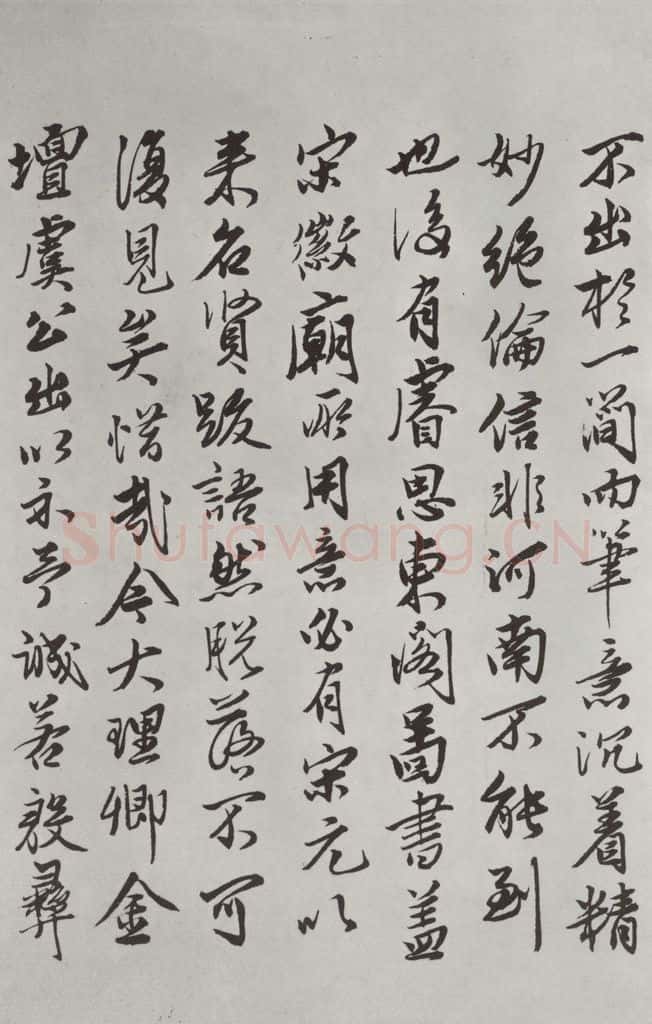 不出於一簡而筆意沉着精
妙絶倫信非河南不能到
也後有睿思東閣圖書盖
宋徽廟所用意必有宋元以
来名賢跋語然脱落不可
復見矣惜哉今大理卿金
壇虞公出以示予誠若殷彝
Shufawang.CN